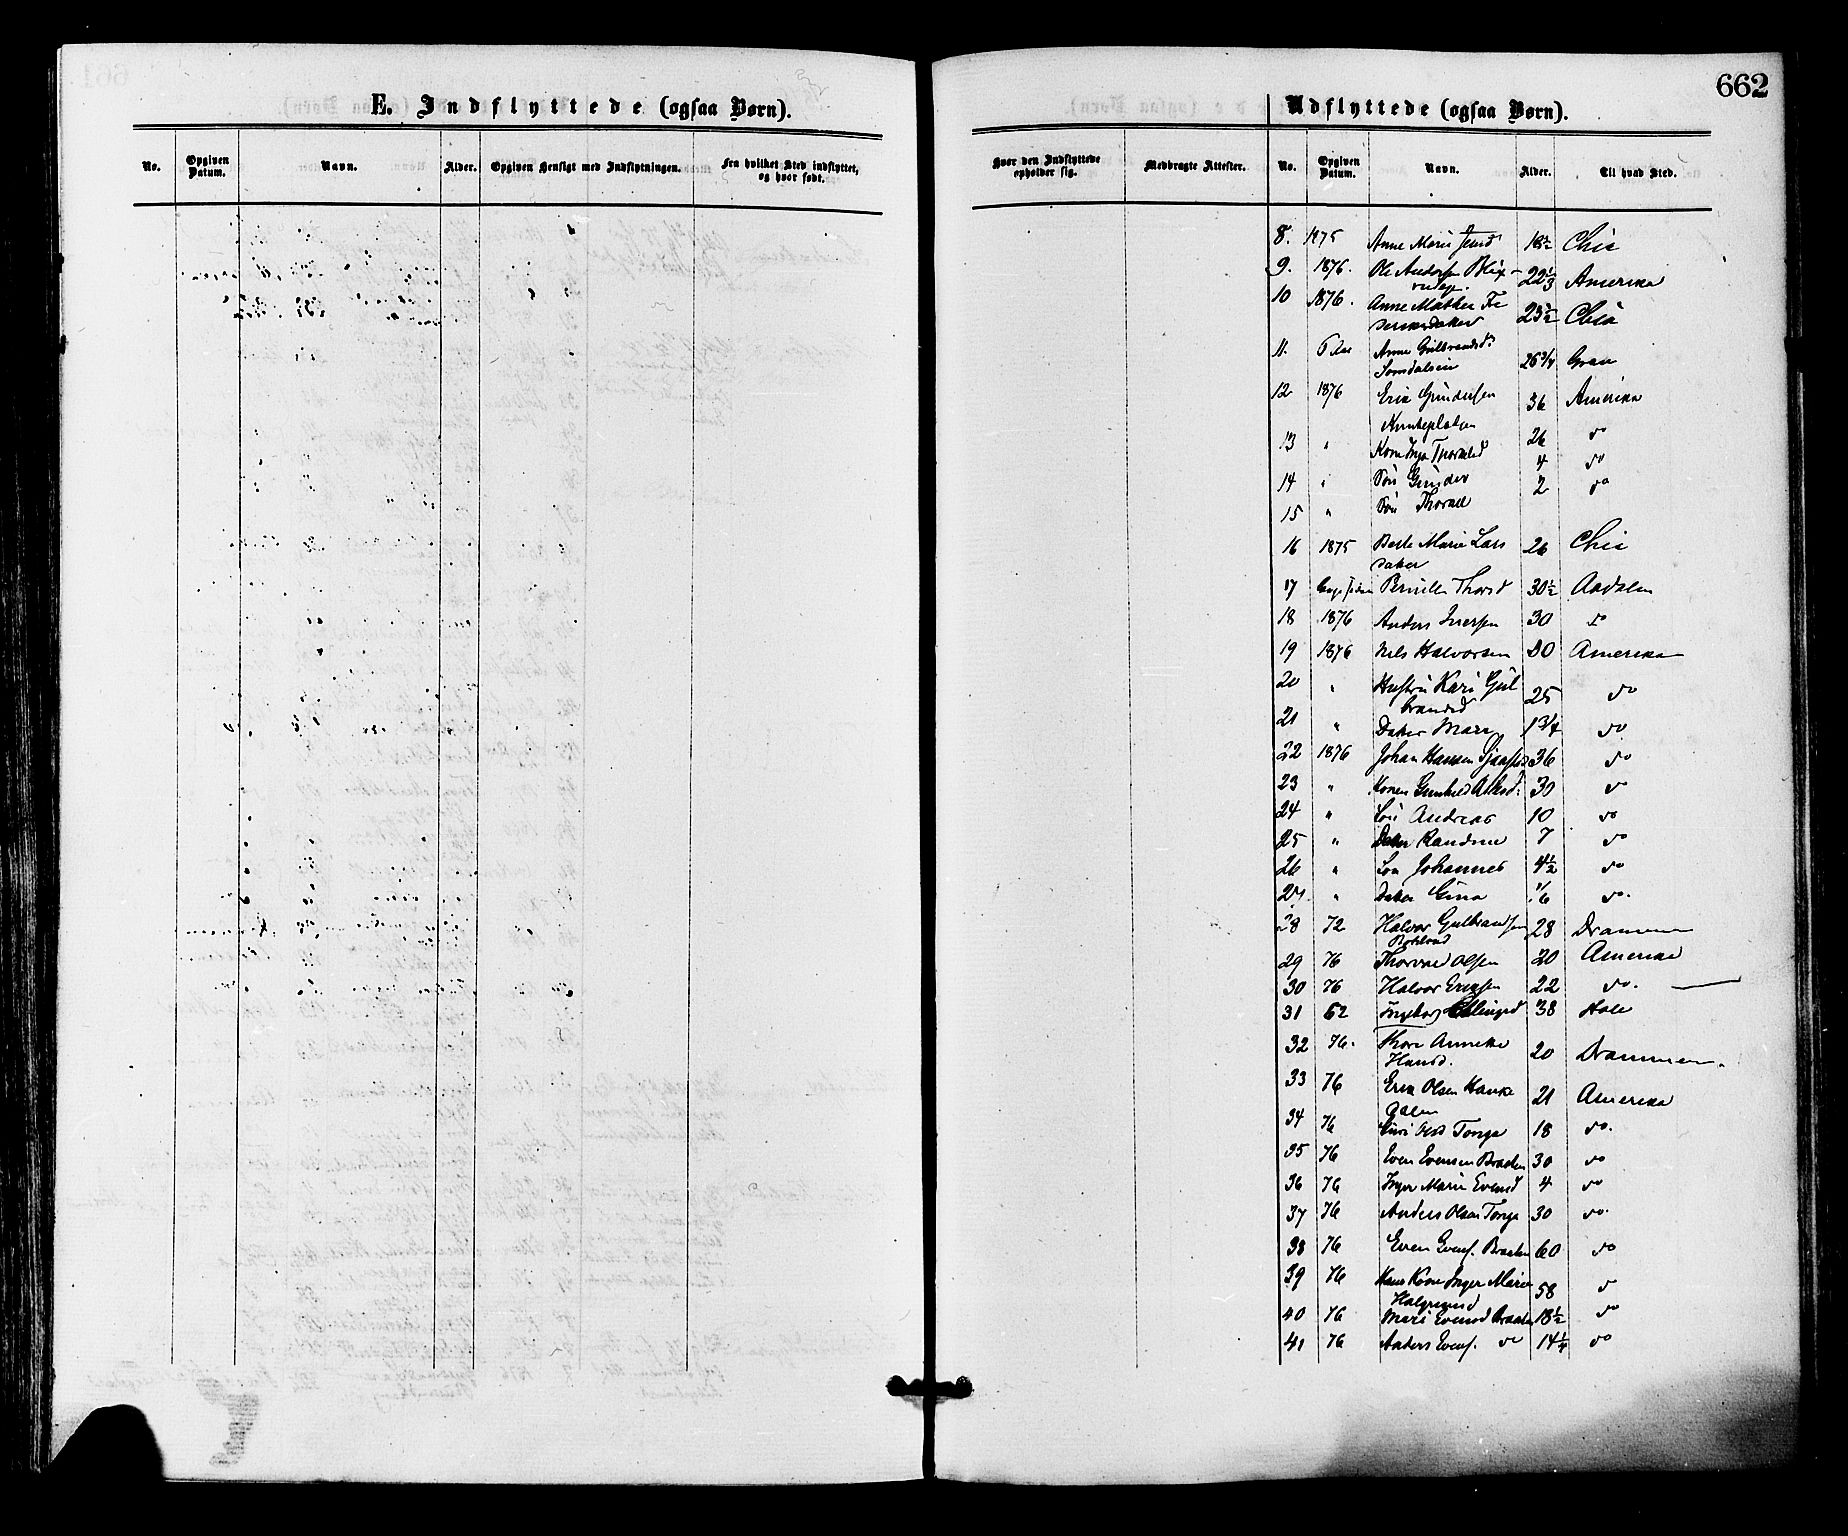 E. Indflyttede (ogsaa Børn).
No.
Opgiven Datum.
Navn.
Alder.
Opgiven Hensigt med Indflytningen.
Fra hvilket Sted indflyttet, og hvor født.
662
Udflyttede (ogsaa Børn).
Hvor den Indflyttede opholder sig.
Medbragte Attester.
No.
Opgiven Datum.
Navn.
Alder.
Til hvad Sted.
8. 1875 Anne Marie 18½ Chri
9. 1876. Ole Andersen 22⅓ Amerika
10 1876. Anne Mathea 25½ Chria
11. Anne Gulbrandsd. 26¾ Gran
12 1876 Erik Gundersen 36 Amerika
13 " Kone Inga Thorvalds 26 do
14 " Søn Gunder 4 do
15 " Søn Thorvald 2 do
16 1875 Berte Marie Lars 26 Chri
datter
17 Pernille Thorsd 30½ Aadalen
18 1876 Anders Iversen 30 do
19 1876 Nils Halvorsen 30 Amerika
20 " Hustru Kari Gul
brandsd 25 do
21 " Datter Mari 1¾ do
22 1876 Johan Hansen 36 do
23 " Konen Gunhild 30 do
24 " Søn Andreas 10 do
25 " Datter Randine 7 do
26 " Søn Johannes 4½ do
27. " Datter Gina ⅙ do.
28 72 Halvor Gulbrandsen 28 Drammen
29 76 Thorvald Olsen 20 Amerika
30 76 Halvor Eriksen 22 do.
31 62 Ingeborg Ellingsd 38 Hole
32 76. Thore Annette
Hansd. 20 Drammen.
33 76 Erik Olsen 21 Amerika
34 76 Guri Olsd Tonga 18 do.
35 76 Even Evensen Braaten 30 do
36 76 Inger Marie Evensd 4 do
37 76 Anders Olsen Tonga 30 do.
38 76 Even Evens. Braaten 60 do
39 76 Hans Kone Inger Marie
58 d
40 76 Mari Evensd Braaten 18½ do
41 76 Anders Evens. do 14¼ do